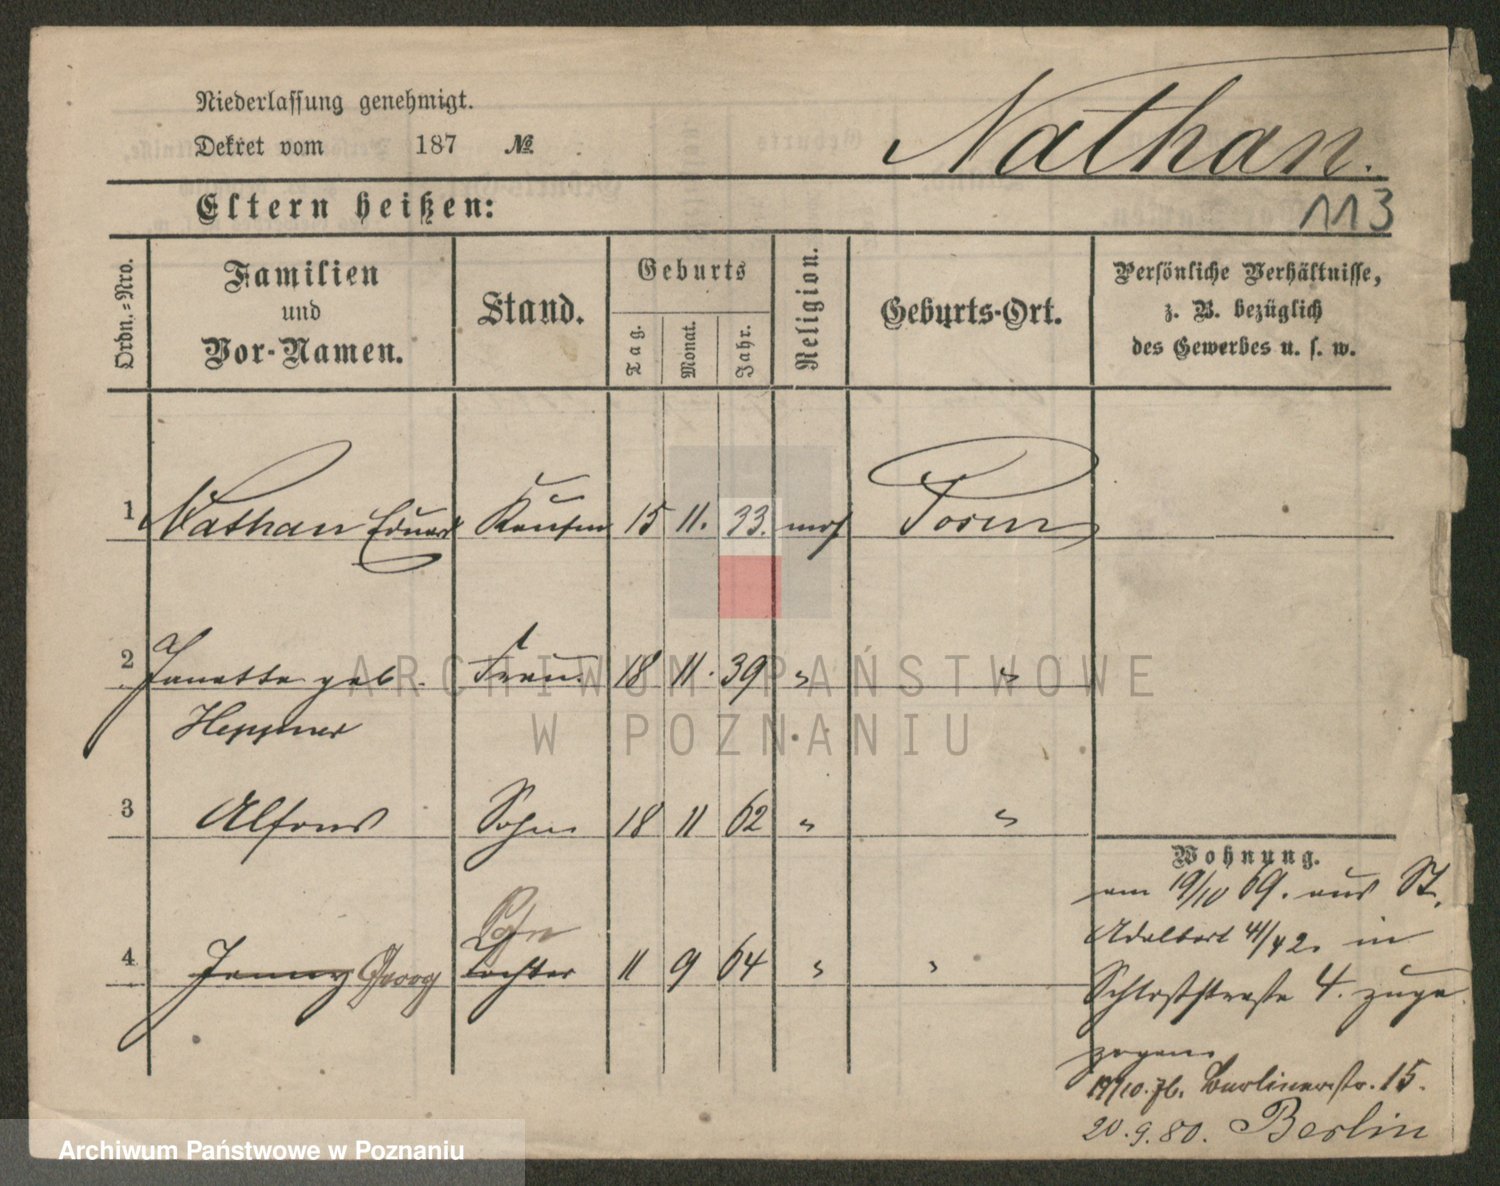 Niederlassung genehmigt.
Dekret vom 187 №
Nathan.
113
Eltern heißen:
Ordn.=Nro.
Familien
und
Vor-Namen.
Stand.
Geburts
Tag.
Monat.
Jahr.
Religion.
Geburts-Ort.
Persönliche Verhältnisse,
z. B. bezüglich
des Gewerbes u. s. w.
1 Nathan Eduard Kaufm 15 11. 33. mos Posen
2 Janette geb. Frau. 18 11. 39 " "
Heppner
3 Alfons Sohn 18 11 62 " "
Wohnung.
am 19/10 69. aus St.
Adalbert 41/42. in
Sohn
4 Jenny Georg Tochter 11 9 64 " "
Schloßstraße 4. zuge
zogen.
Berlinerstr. 15.
20.9.80. Berlin
ARCHIWUM PAŃSTWOWE
W POZNANIU
Archiwum Państwowe w Poznaniu